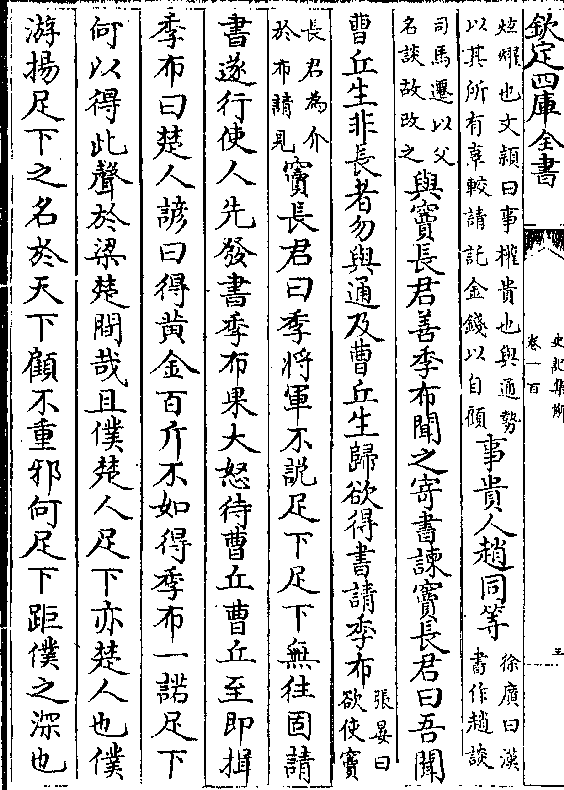 欽定四庫全書
史記集解
卷一百
三
炫燿也文穎曰事權貴也與通勢
以其所有辜較請託金錢以自顧
事貴人趙同等
徐廣曰漢
書作趙談
司馬遷以父
名談故改之
與竇長君善季布聞之寄書諫竇長君曰吾聞
曹丘生非長者勿與通及曹丘生歸欲得書請季布
張晏曰
欲使竇
長君為介
於布請見
竇長君曰季將軍不說足下足下無往固請
書遂行使人先發書季布果大怒待曹丘曹丘至即揖
季布曰楚人諺曰得黃金百斤不如得季布一諾足下
何以得此聲於梁楚間哉且僕楚人足下亦楚人也僕
游揚足下之名於天下顧不重邪何足下距僕之深也